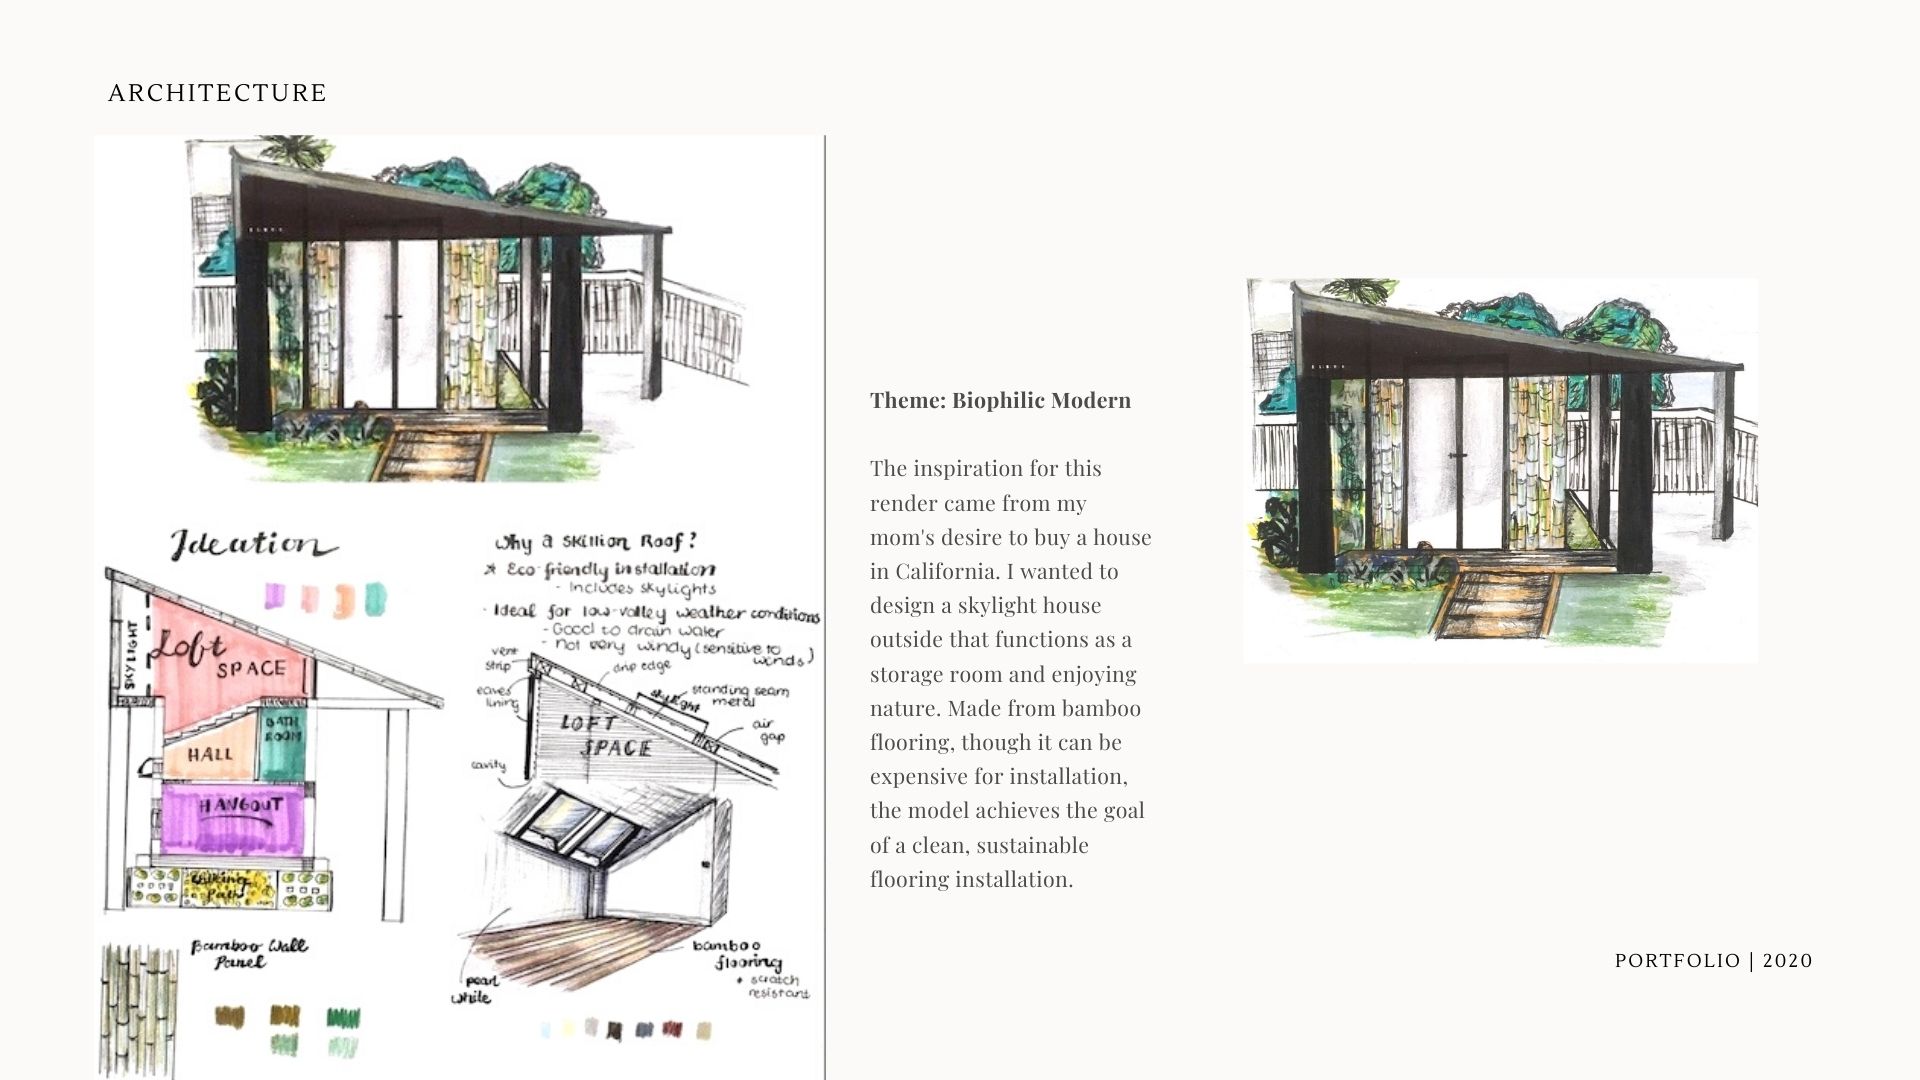 ARCHITECTURE
Ideation
SKYLIGHT
Loft
SPACE
HALL
BATH
ROOM
HANGOUT
Walking
Path
Bamboo Wall
Panel
Why a Skillion Roof?
Eco-friendly installation
- Includes skylights
- Ideal for low-valley weather conditions
- Good to drain water
- Not very windy (sensitive to
winds)
vent
strip
drip edge
eaves
lining
skylight
standing seam
metal
air
gap
LOFT
SPACE
cavity
bamboo
flooring
+ scratch
resistant
pearl
white
Theme: Biophilic Modern
The inspiration for this
render came from my
mom's desire to buy a house
in California. I wanted to
design a skylight house
outside that functions as a
storage room and enjoying
nature. Made from bamboo
flooring, though it can be
expensive for installation,
the model achieves the goal
of a clean, sustainable
flooring installation.
PORTFOLIO | 2020